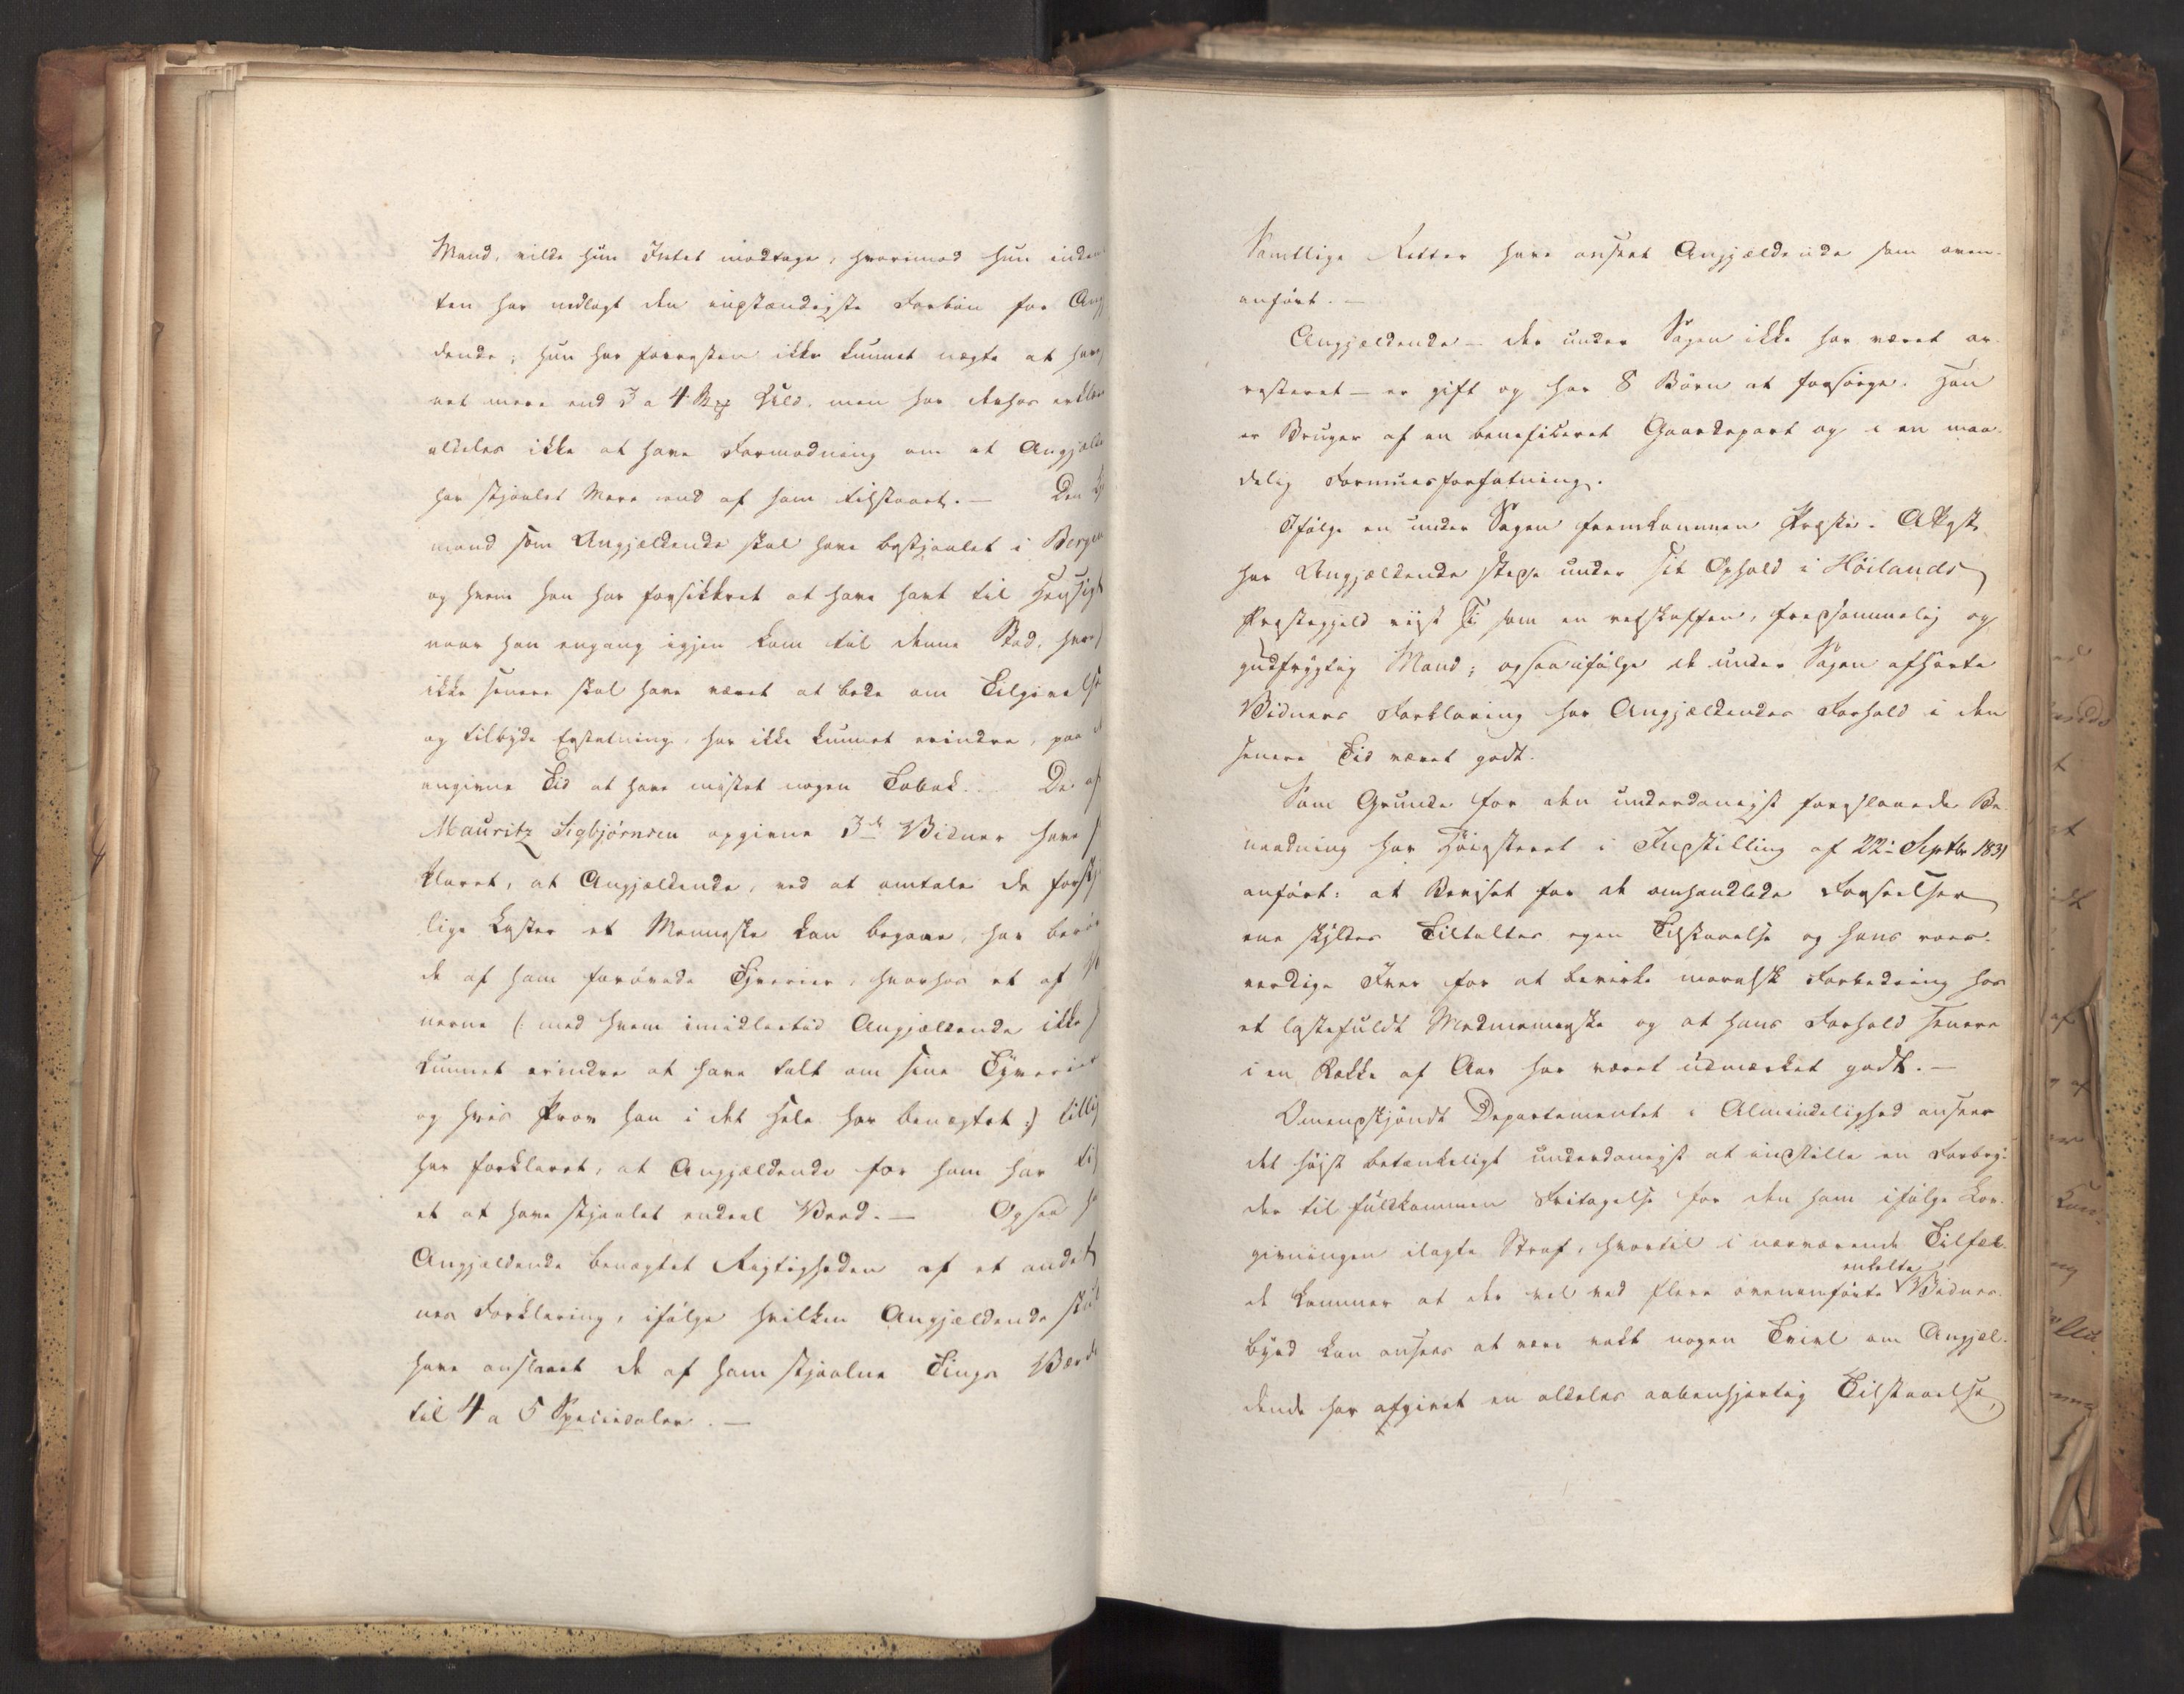 Mand, vilde hun Intet modtage, hvorimod hun inden
ten har nedlagt den indstændigste Forbøn for Ang
dende; hun har forresten ikke kunnet nægte at have
net mere end 3 a 4 Uld, men har derhos erklær
aldeles ikke at have Formodning om at Angjælde
har stjaalet Mere end af ham tilstaaet. — Den
mand som Angjældende skal have bestjaalet i Bergen
og hvem han har forsikkret at have havt til Hensigt
naar han engang igjen kom til denne Stad, hvor
ikke senere skal have været at bede om Tilgivelse
og tilbyde Erstatning, har ikke kunnet erindre, paa
angivne Tid at have mistet nogen Tobak. De af
Mauritz Sigbjørnsen opgivne 3de Vidner have
klaret, at Angjældende, ved at omtale de forskj
lige Laster et Menneske kan begaae, har berør
de af ham forøvede Tyverier, hvorhos et af
nerne (: med hvem imidlertid Angjældende ikke
kunnet erindre at have talt om sine Tyverier
og hvis Prov han i det Hele har benægtet :) tillig
har forklaret, at Angjældende for ham har
et at have stjaalet endeel Brød. — Ogsaa
Angjældende benægtet Rigtigheden af et andet
nes Forklaring, ifølge hvilken Angjældende skal
have anslaaet de af ham stjaalne Tings Værdi
til 4 a 5 Speciedaler. —
Samtlige Retter have anseet Angjældende som oven-
anført. —
Angjældende — der under Sagen ikke har været ar-
resteret — er gift og har 8 Børn at forsørge. Han
er Bruger af en beneficeret Gaardepart og i en maa-
delig Formuesforfatning.
Ifølge en under Sagen fremkommen Præste-Attest
har Angjældende stedse under sit Ophold i Höilands
Præstegjeld viist sig som en retskaffen, fredsommelig og
gudfrygtig Mand; ogsaa ifølge de under Sagen afhørte
Vidners Forklaring har Angjældendes Forhold i den
senere Tid været godt.
Som Grunde for den underdanigst foreslaaede Be-
naadning har Høiesteret i Indstilling af 22de Septbr 1831
anført: at Beviset for de omhandlede Forseelser
ene skyldes Tiltaltes egen Tilstaaelse og hans roes-
værdige Iver for at bevirke moralsk Forbedring hos
et lastefuldt Medmenneske og at hans Forhold senere
i en Række af Aar har været udmærket godt. —
Omendskjøndt Departementet i Almindelighed anseer
det høist betænkeligt underdanigst at indstille en Forbry-
der til fuldkommen Fritagelse for den ham ifølge Lov-
givningen ilagte Straf, hvortil i nærværende Tilfæl-
de kommer at der vel ved flere ovenanførte enkelte Vidnes-
byrd kan ansees at være vakt nogen Tvivl om Angjæl-
dende har afgivet en aldeles aabenhjertig Tilstaaelse,